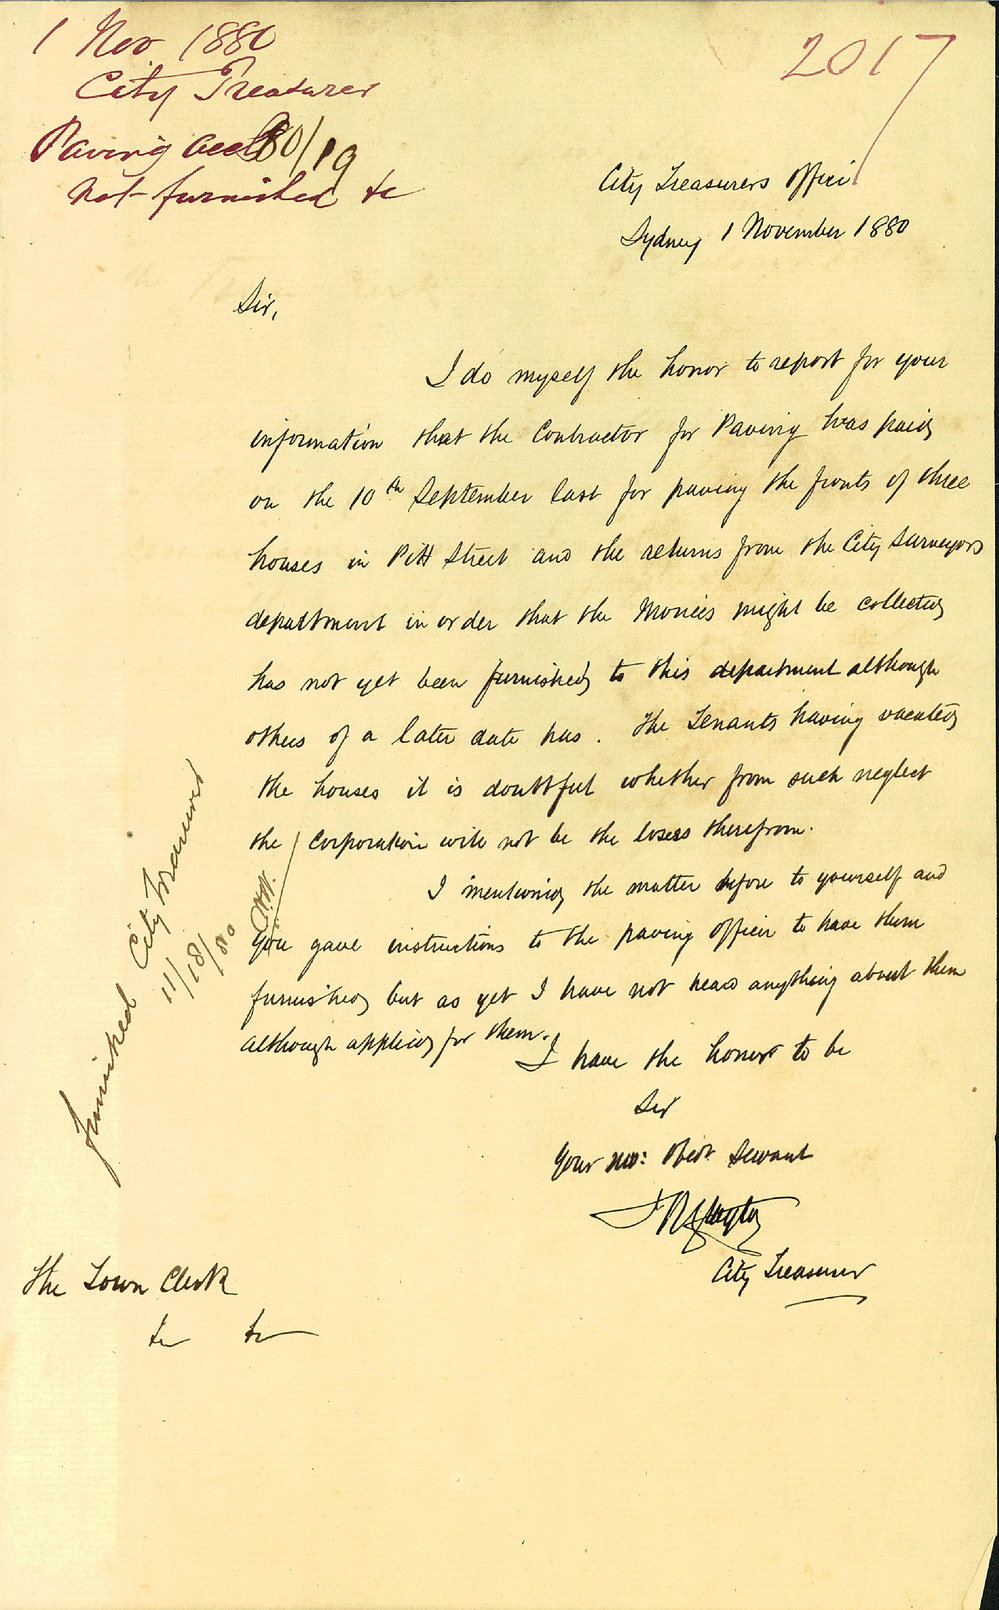 1 Nov 1880
City Treasurer
Paving accts
not furnished &c
80/19
2017
City Treasurers Office
Sydney 1 November 1880
Sir,
I do myself the honor to report for your
information that the Contractor for Paving was paid
on the 10th September last for paving the fronts of three
houses in Pitt Street and the returns from the City Surveyors
department in order that the Monies might be collected
has not yet been furnished to this department although
others of a later date has. The Tenants having vacated
the houses it is doubtful whether from such neglect
the Corporation will not be the losers therefrom.
I mentioned the matter before to yourself and
you gave instructions to the paving officer to have them
furnished but as yet I have not heard anything about them
although applied for them.
I have the honor to be
Sir
Your Mo: Obedt Servant
City Treasurer
The Town Clerk
&c &c
furnished City Treasurer